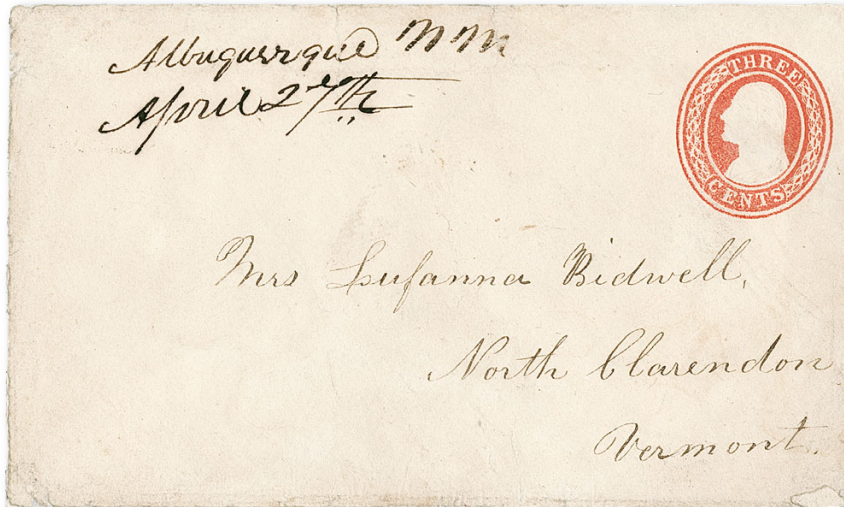 Albuquerque N M
April 27th
THREE
CENTS
Mrs Lufanna Bidwell,
North Clarendon
Vermont.